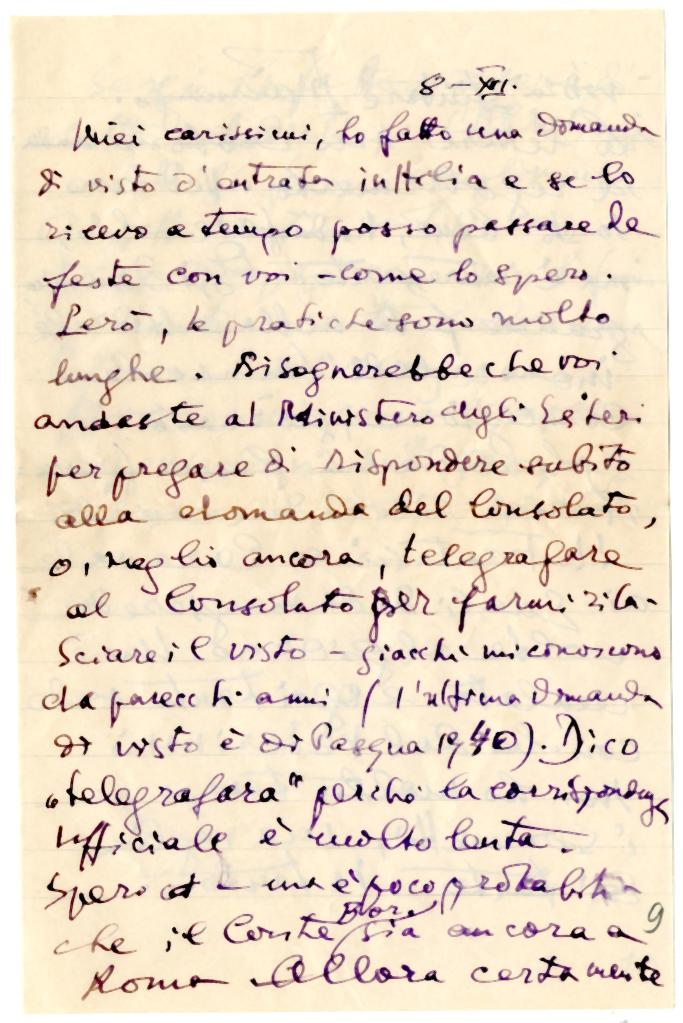 8 – XII.
Miei carissimi, ho fatto una domanda
di visto d'entrata in Italia e se lo
ricevo a tempo posso passare le
feste con voi – come lo spero.
Però, le pratiche sono molto
lunghe. Bisognerebbe che voi
andaste al Ministero degli Esteri
per pregare di rispondere subito
alla domanda del Consolato,
o, meglio ancora, telegrafare
al Consolato per farmi rila-
sciare il visto – giacchi mi conoscono
da parecchi anni (l'ultima domanda
di visto è di Pasqua 1940). Dico
„telegrafara" perchè la corrispondenza
ufficiale è molto lenta.
Spero – ma è poco probabile –
che il Conte sia ancora a
Roma. Allora certamente
9